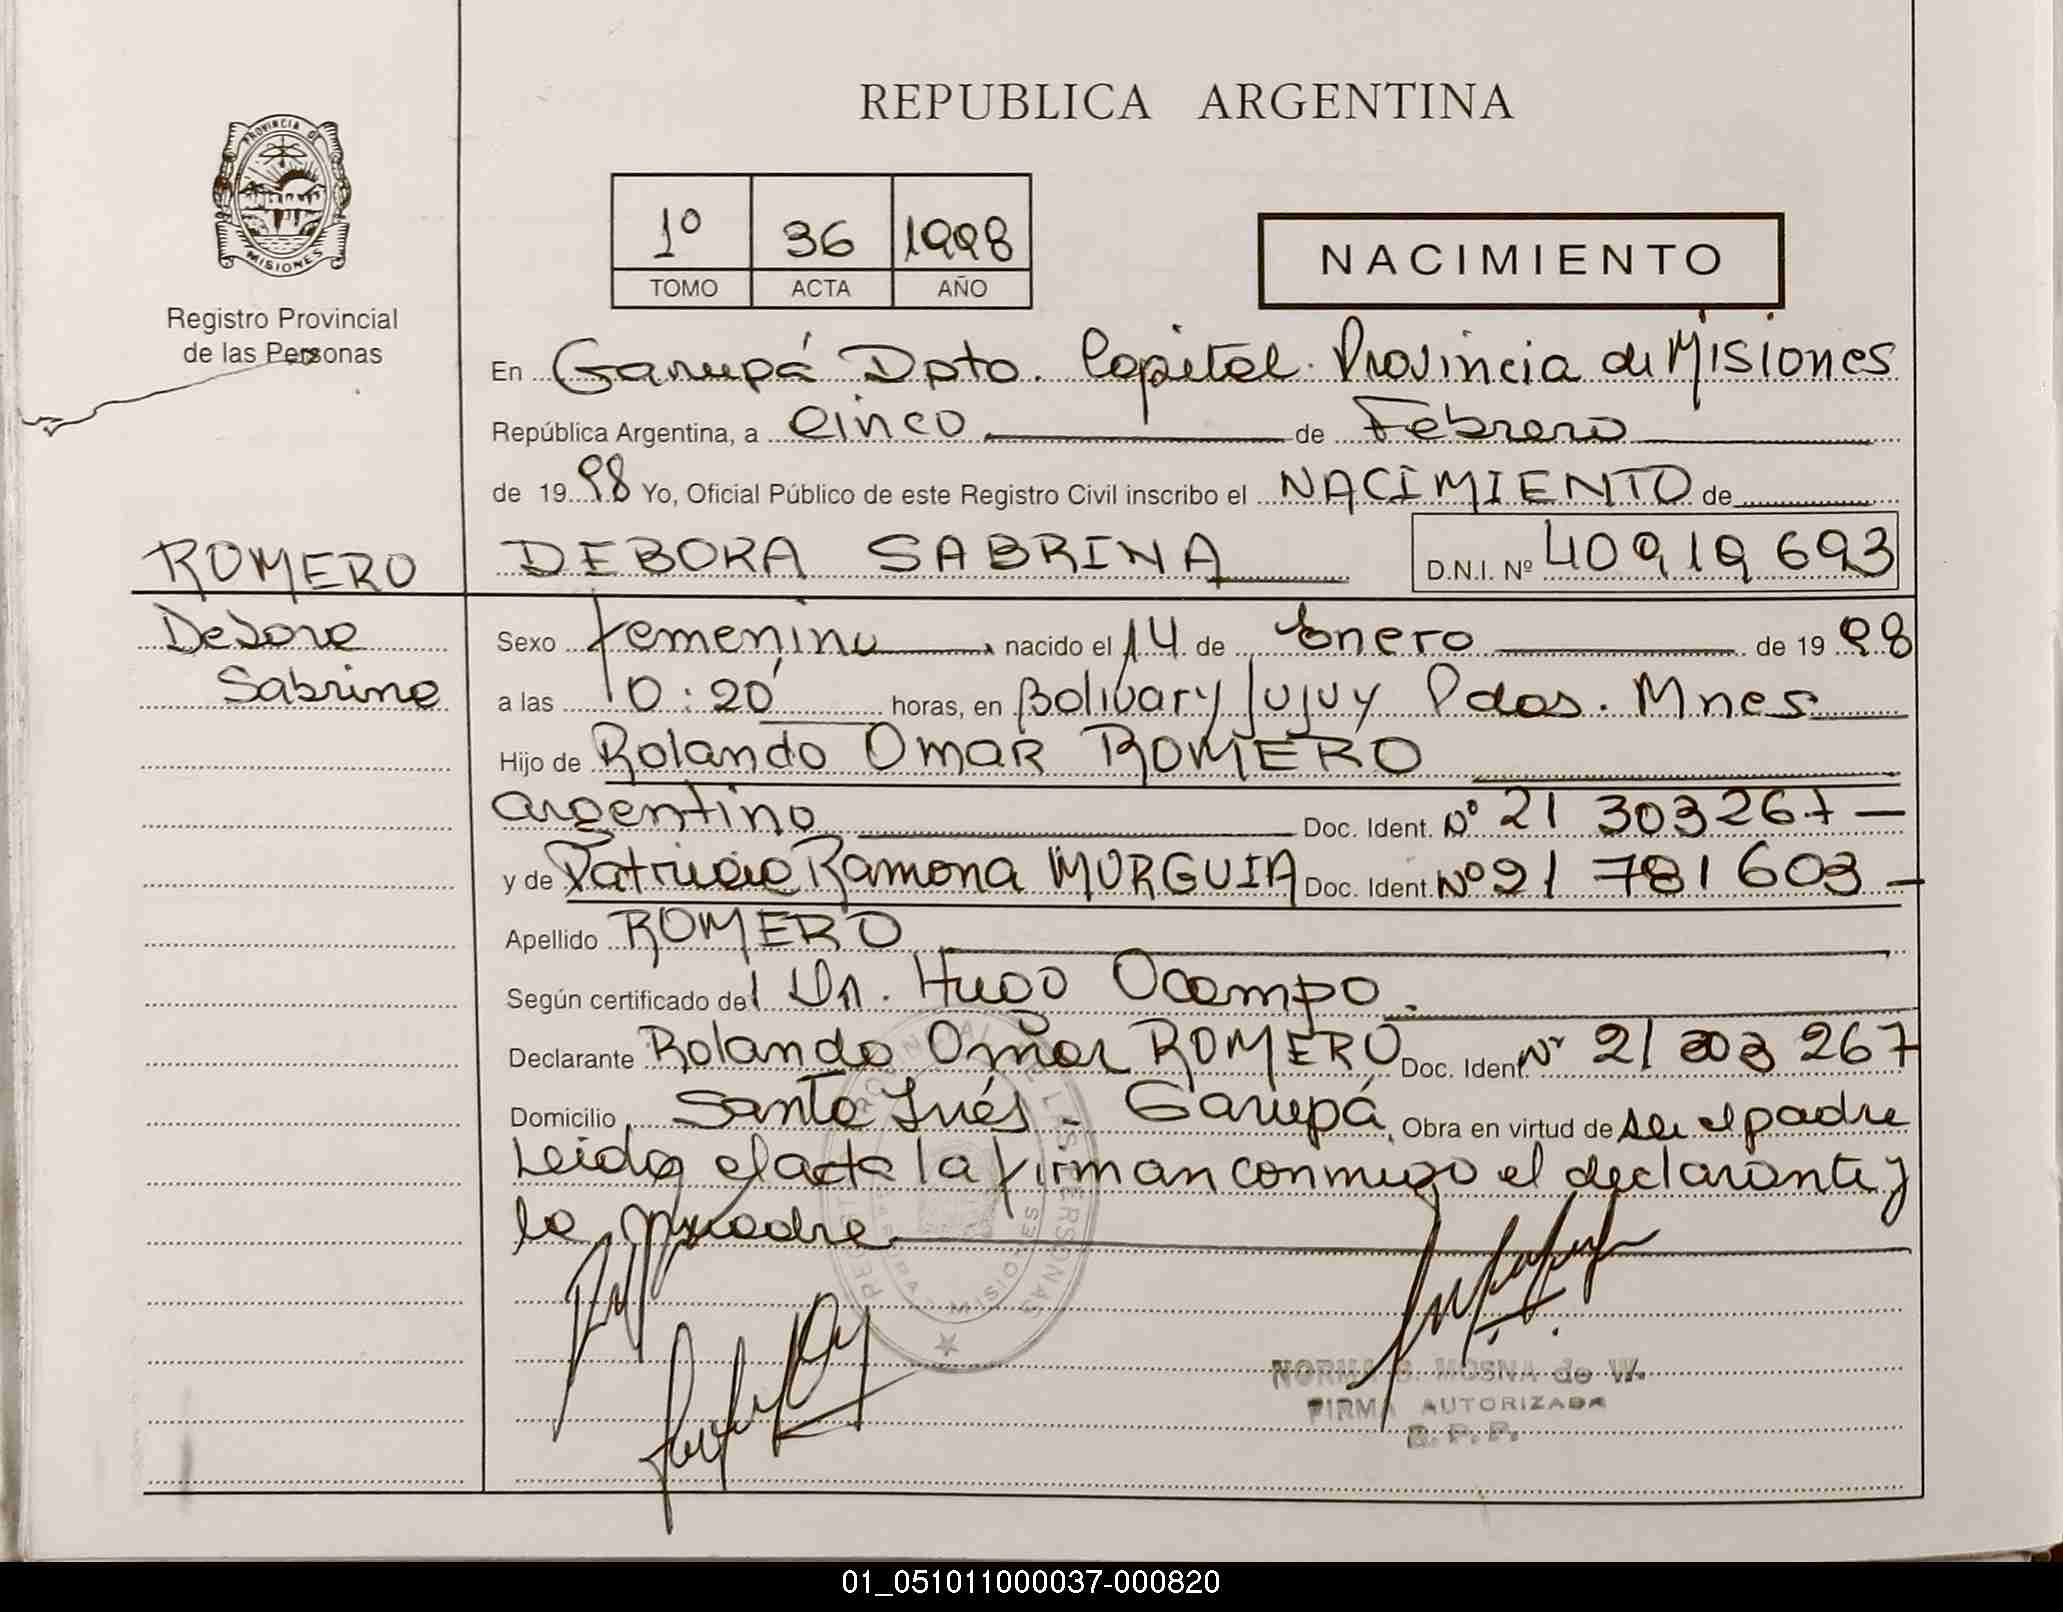 REPUBLICA ARGENTINA
PROVINCIA DE
MISIONES
Registro Provincial
de las Personas
1º 36 1998
TOMO ACTA AÑO
NACIMIENTO
En Garupá Dpto. Capital. Provincia de Misiones
República Argentina, a cinco de Febrero
de 1998 Yo, Oficial Público de este Registro Civil inscribo el NACIMIENTO de
ROMERO DEBORA SABRINA D.N.I. Nº 40 919 693
Debora
Sabrina
Sexo femenino nacido el 14 de Enero de 1998
a las 10:20 horas, en Bolivar y Jujuy Pdas. Mnes
Hijo de Rolando Omar ROMERO
argentino Doc. Ident. Nº 21 303 267
y de Patricia Ramona MURGUIA Doc. Ident. Nº 21 781 603
Apellido ROMERO
Según certificado del Dr. Hugo Ocampo.
Declarante Rolando Omar ROMERO Doc. Ident Nº 21 303 267
Domicilio Santa Inés - Garupá, Obra en virtud de ser el padre
Leida el acta la firman conmigo el declarante y
la madre
NORMA B. MOSNA de W.
FIRMA AUTORIZADA
R. P. P.
01_051011000037-000820